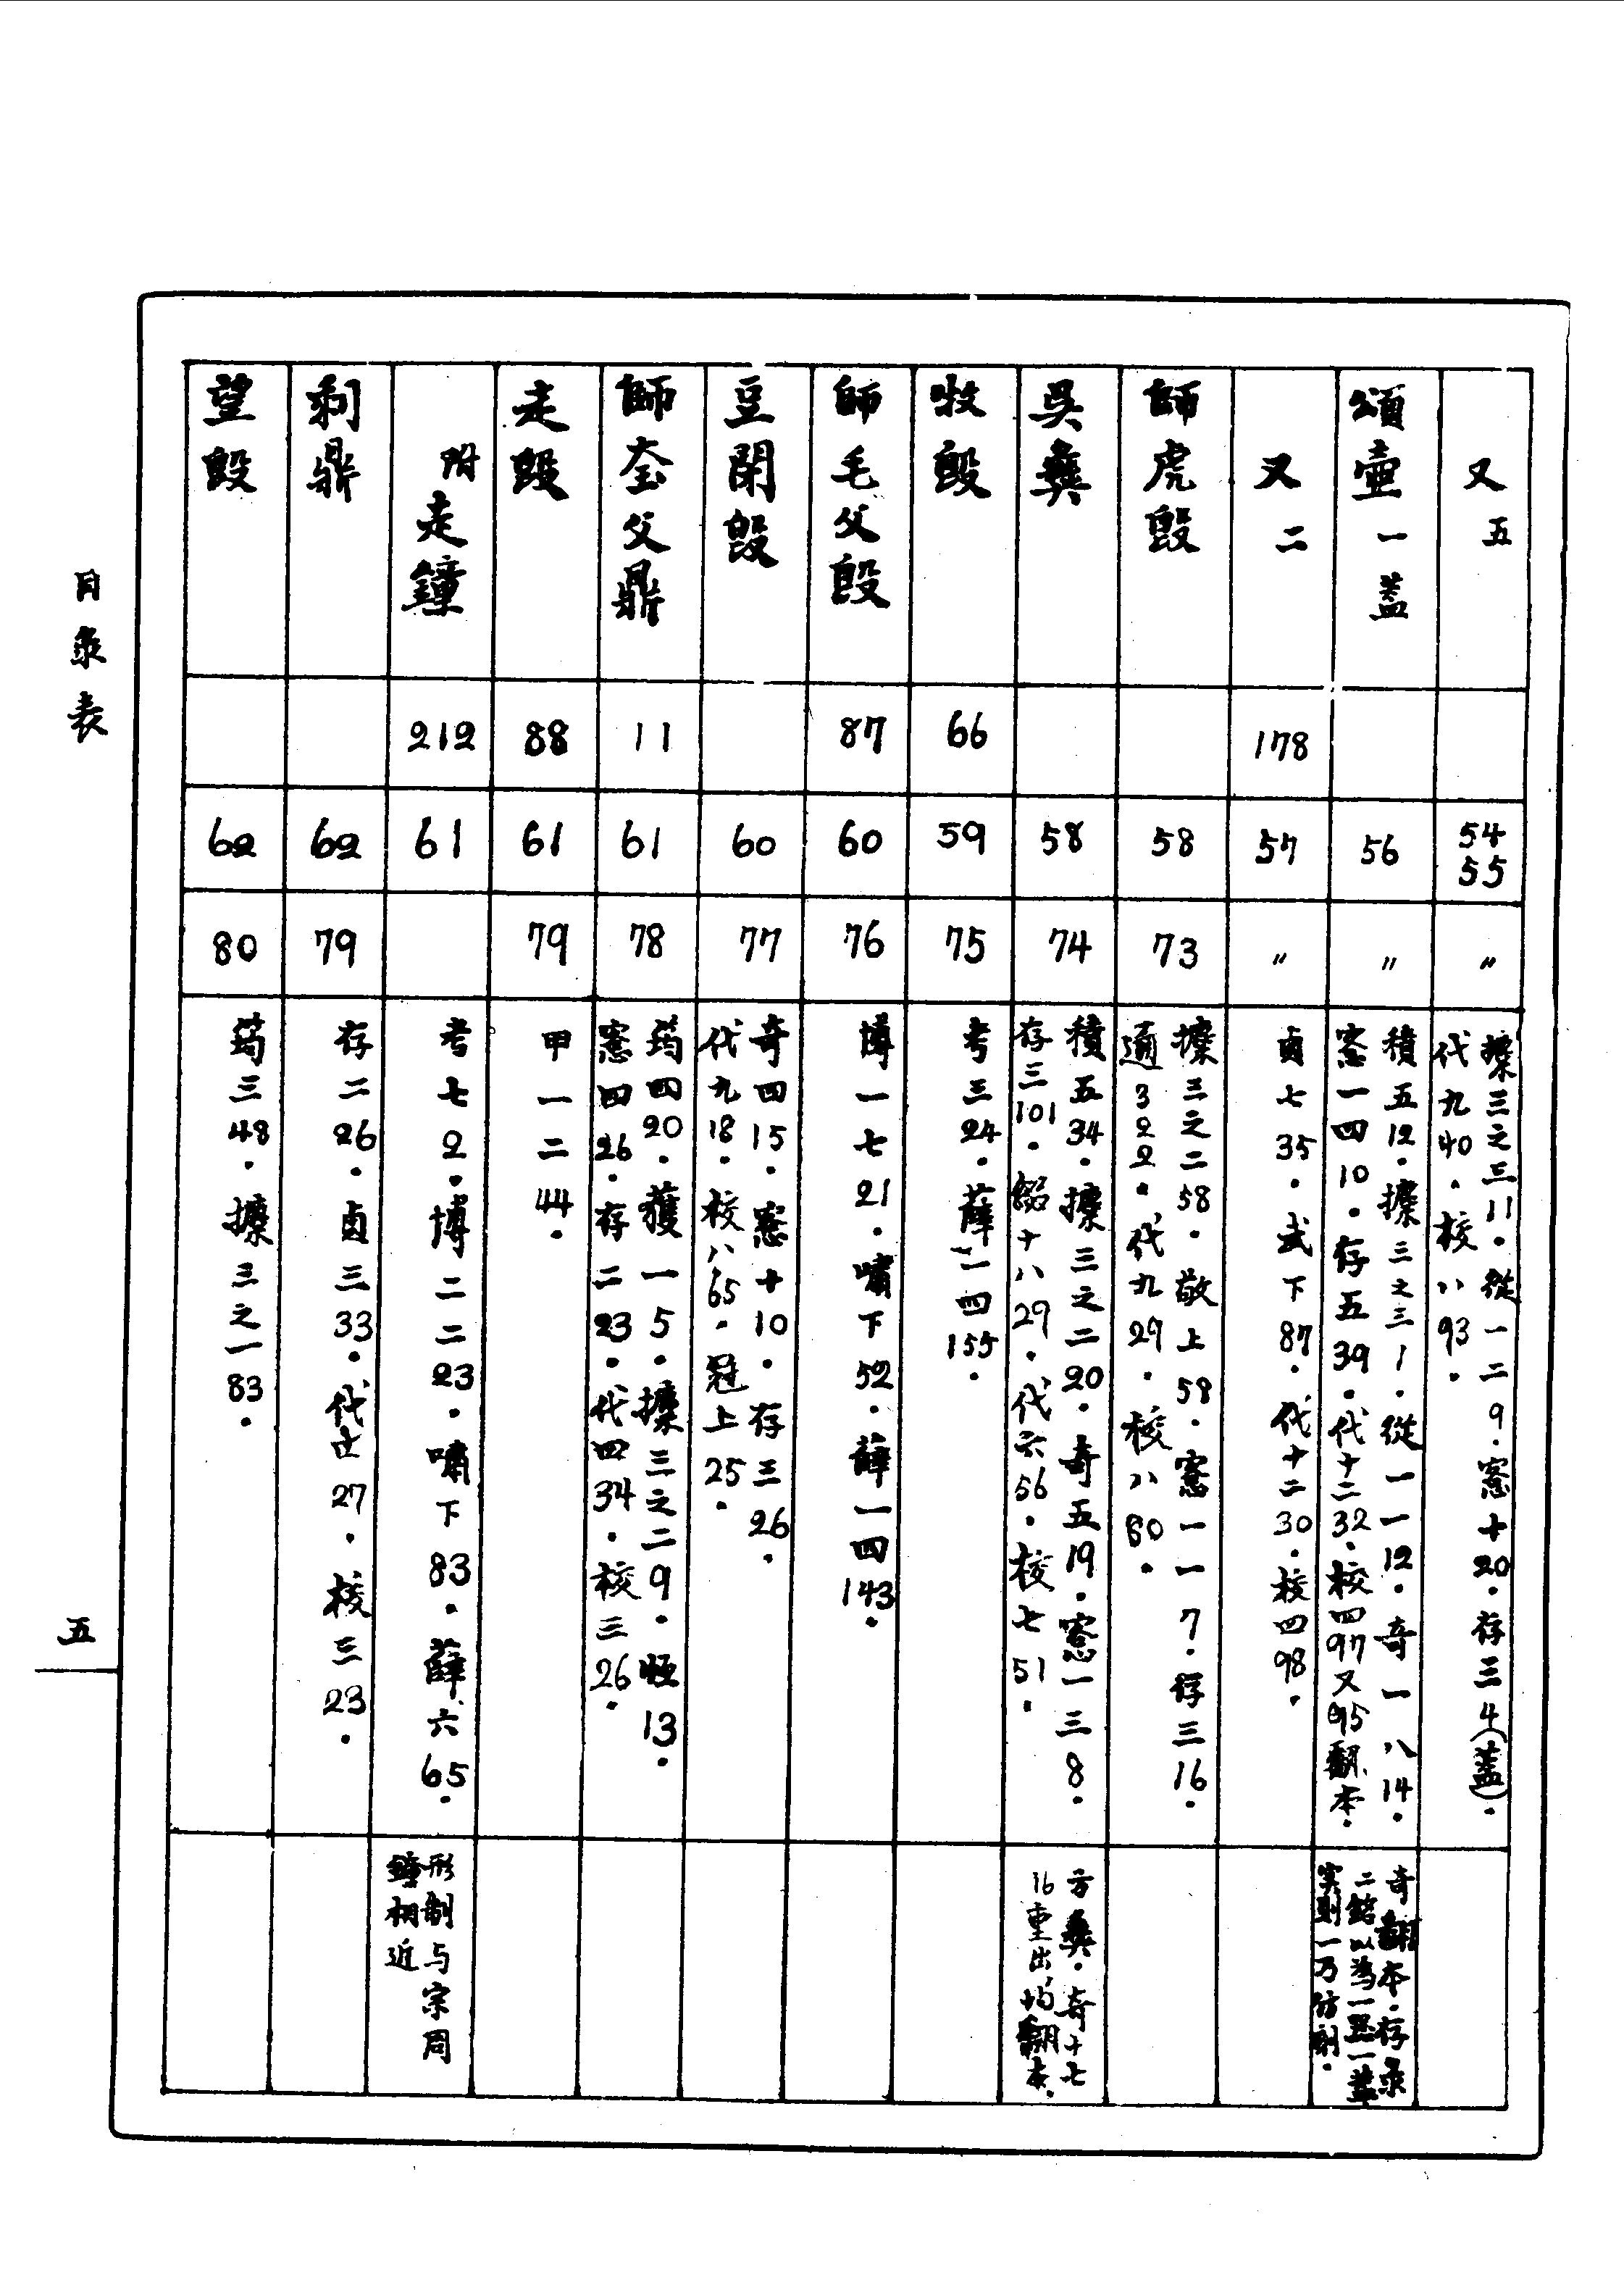 又五
54
55
〃
攈三之三11．從一二9．愙十20．存三4(蓋)．
代九40．校八93．
頌壺一蓋
56
〃
積五12．攈三之三1．從一一12．奇一八14．
愙一四10．存五39．代十二32．校四97又95翻本．
奇翻本．存录
二銘以為一器一蓋
实則一乃仿刻．
又二
178
57
〃
卣七35．武下87．代十二30．校四98．
師虎𣪘
58
73
攈三之二58．敬上58．愙一一7．存三16．
通322．代九29．校八80．
吳彝
58
74
積五34．攈三之二20．奇五19．愙一三8．
存三101．綴十八29．代六56．校七51．
方彝．奇十七
16重出均翻本．
牧𣪘
66
59
75
考三24．薛一四155．
師毛父𣪘
87
60
76
博一七21．嘯下52．薛一四143．
豆閉𣪘
60
77
奇四15．愙十10．存三26．
代九18．校八65．冠上25．
師𡘇父鼎
11
61
78
筠四20．蕿一5．攈三之二9．恆13．
愙四26．存二23．代四34．校三26．
走𣪘
88
61
79
甲一二44．
附走鐘
212
61
考七2．博二二23．嘯下83．薛六65．
形制与宗周
鐘相近
利鼎
62
79
存二26．卣三33．代四27．校三23．
望𣪘
62
80
筠三48．攈三之一83．
目录表
五